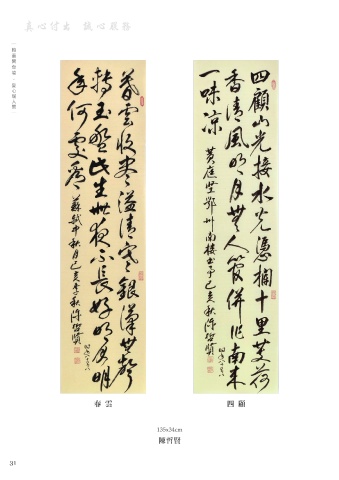 真心付出 誠心服務
四顧山光接水光憑欄十里芰荷
香清風明月無人管併作南來
一味涼 黃庭堅鄂州南樓書事己亥秋陳哲賢
暮雲收盡溢清寒銀漢無聲
轉玉盤此生此夜不長好明月明
年何處看 蘇軾中秋月己亥季秋陳哲賢
春雲
四顧
135x34cm
陳哲賢
31